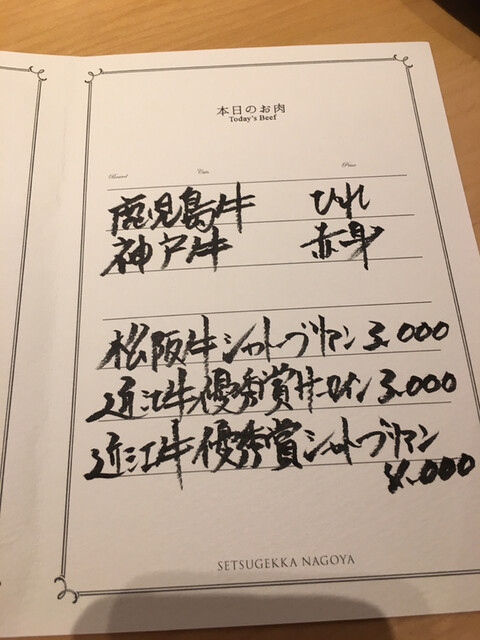 本日のお肉
Today's Beef
Brand Cuts Price
鹿児島牛 ひれ
神戸牛 赤身
松阪牛シャトーブリアン 3.000
近江牛優秀賞サーロイン 3.000
近江牛優秀賞シャトーブリアン
4.000
SETSUGEKKA NAGOYA